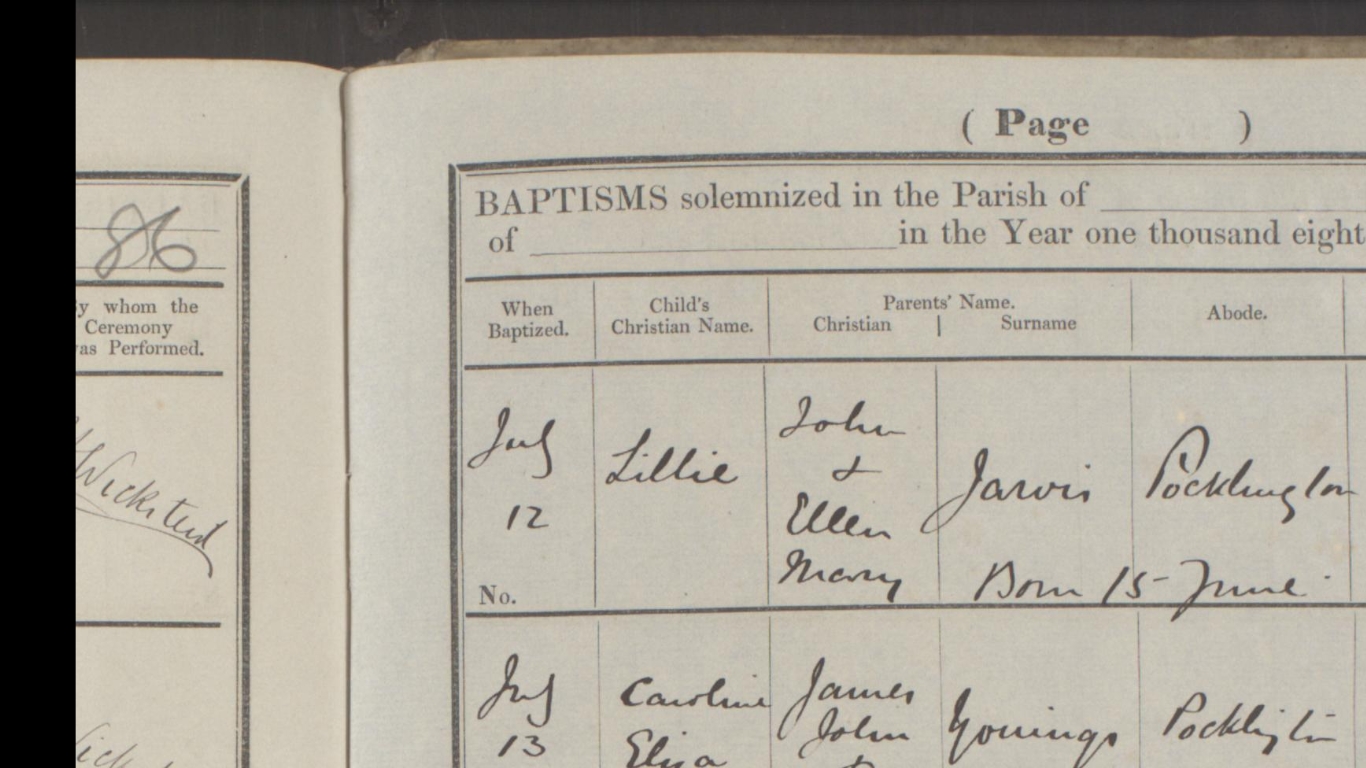 86
By whom the
Ceremony
was Performed.
Wicksteed
( Page )
BAPTISMS solemnized in the Parish of
of in the Year one thousand eight
When
Baptized.
Child's
Christian Name.
Parents' Name.
Christian | Surname
Abode.
July
12
No.
Lillie
John
&
Ellen
Mary
Jarvis
Pocklington
Born 15 June
July
13
Caroline
Eliza
James
John
Pocklington